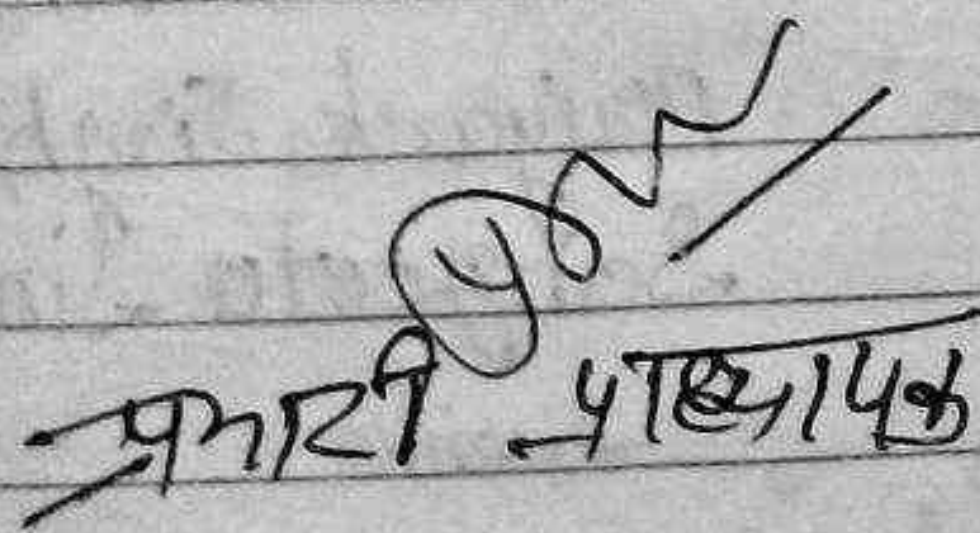 प्रभारी प्राध्यापक